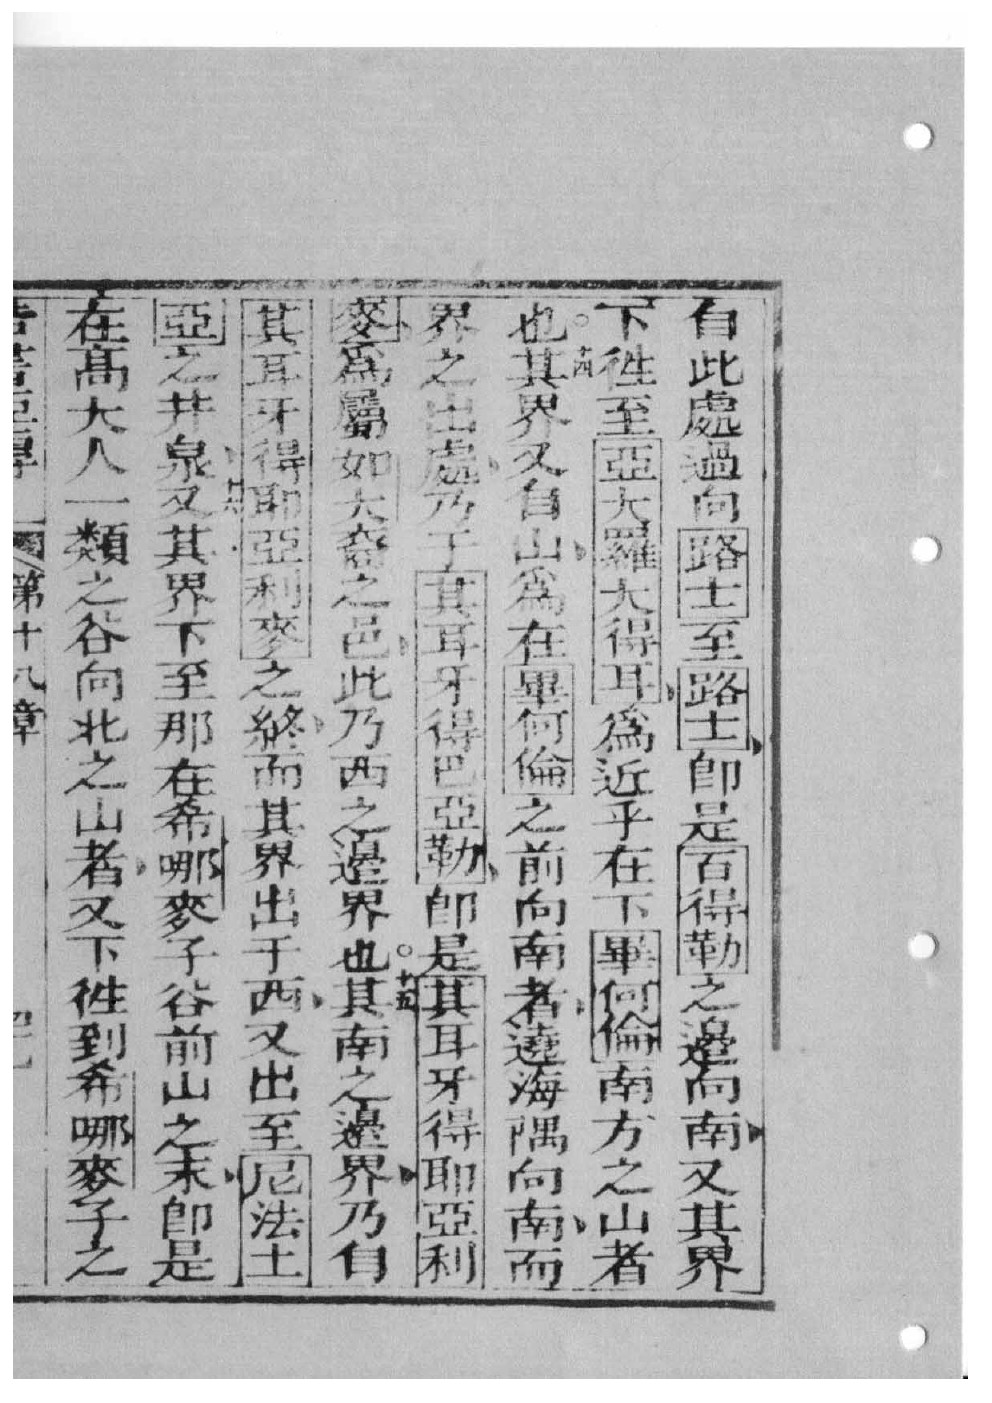 自此處過向路士至路士卽是百得勒之邊向南又其界
下徃至亞大羅大得耳爲近乎在下畢何倫南方之山者
也○十四其界又自山爲在畢何倫之前向南者遶海隅向南而
界之出處乃于其耳牙得巴亞勒卽是其耳牙得耶亞利
麥爲屬如大裔之邑此乃西之邊界也○十五其南之邊界乃自
其耳牙得耶亞利麥之終而其界出于西又出至尼法土
亞之井泉十六又其界下至那在希哪麥子谷前山之末卽是
在高大人一類之谷向北之山者又下徃到希哪麥子之
書亞傳 第十八章